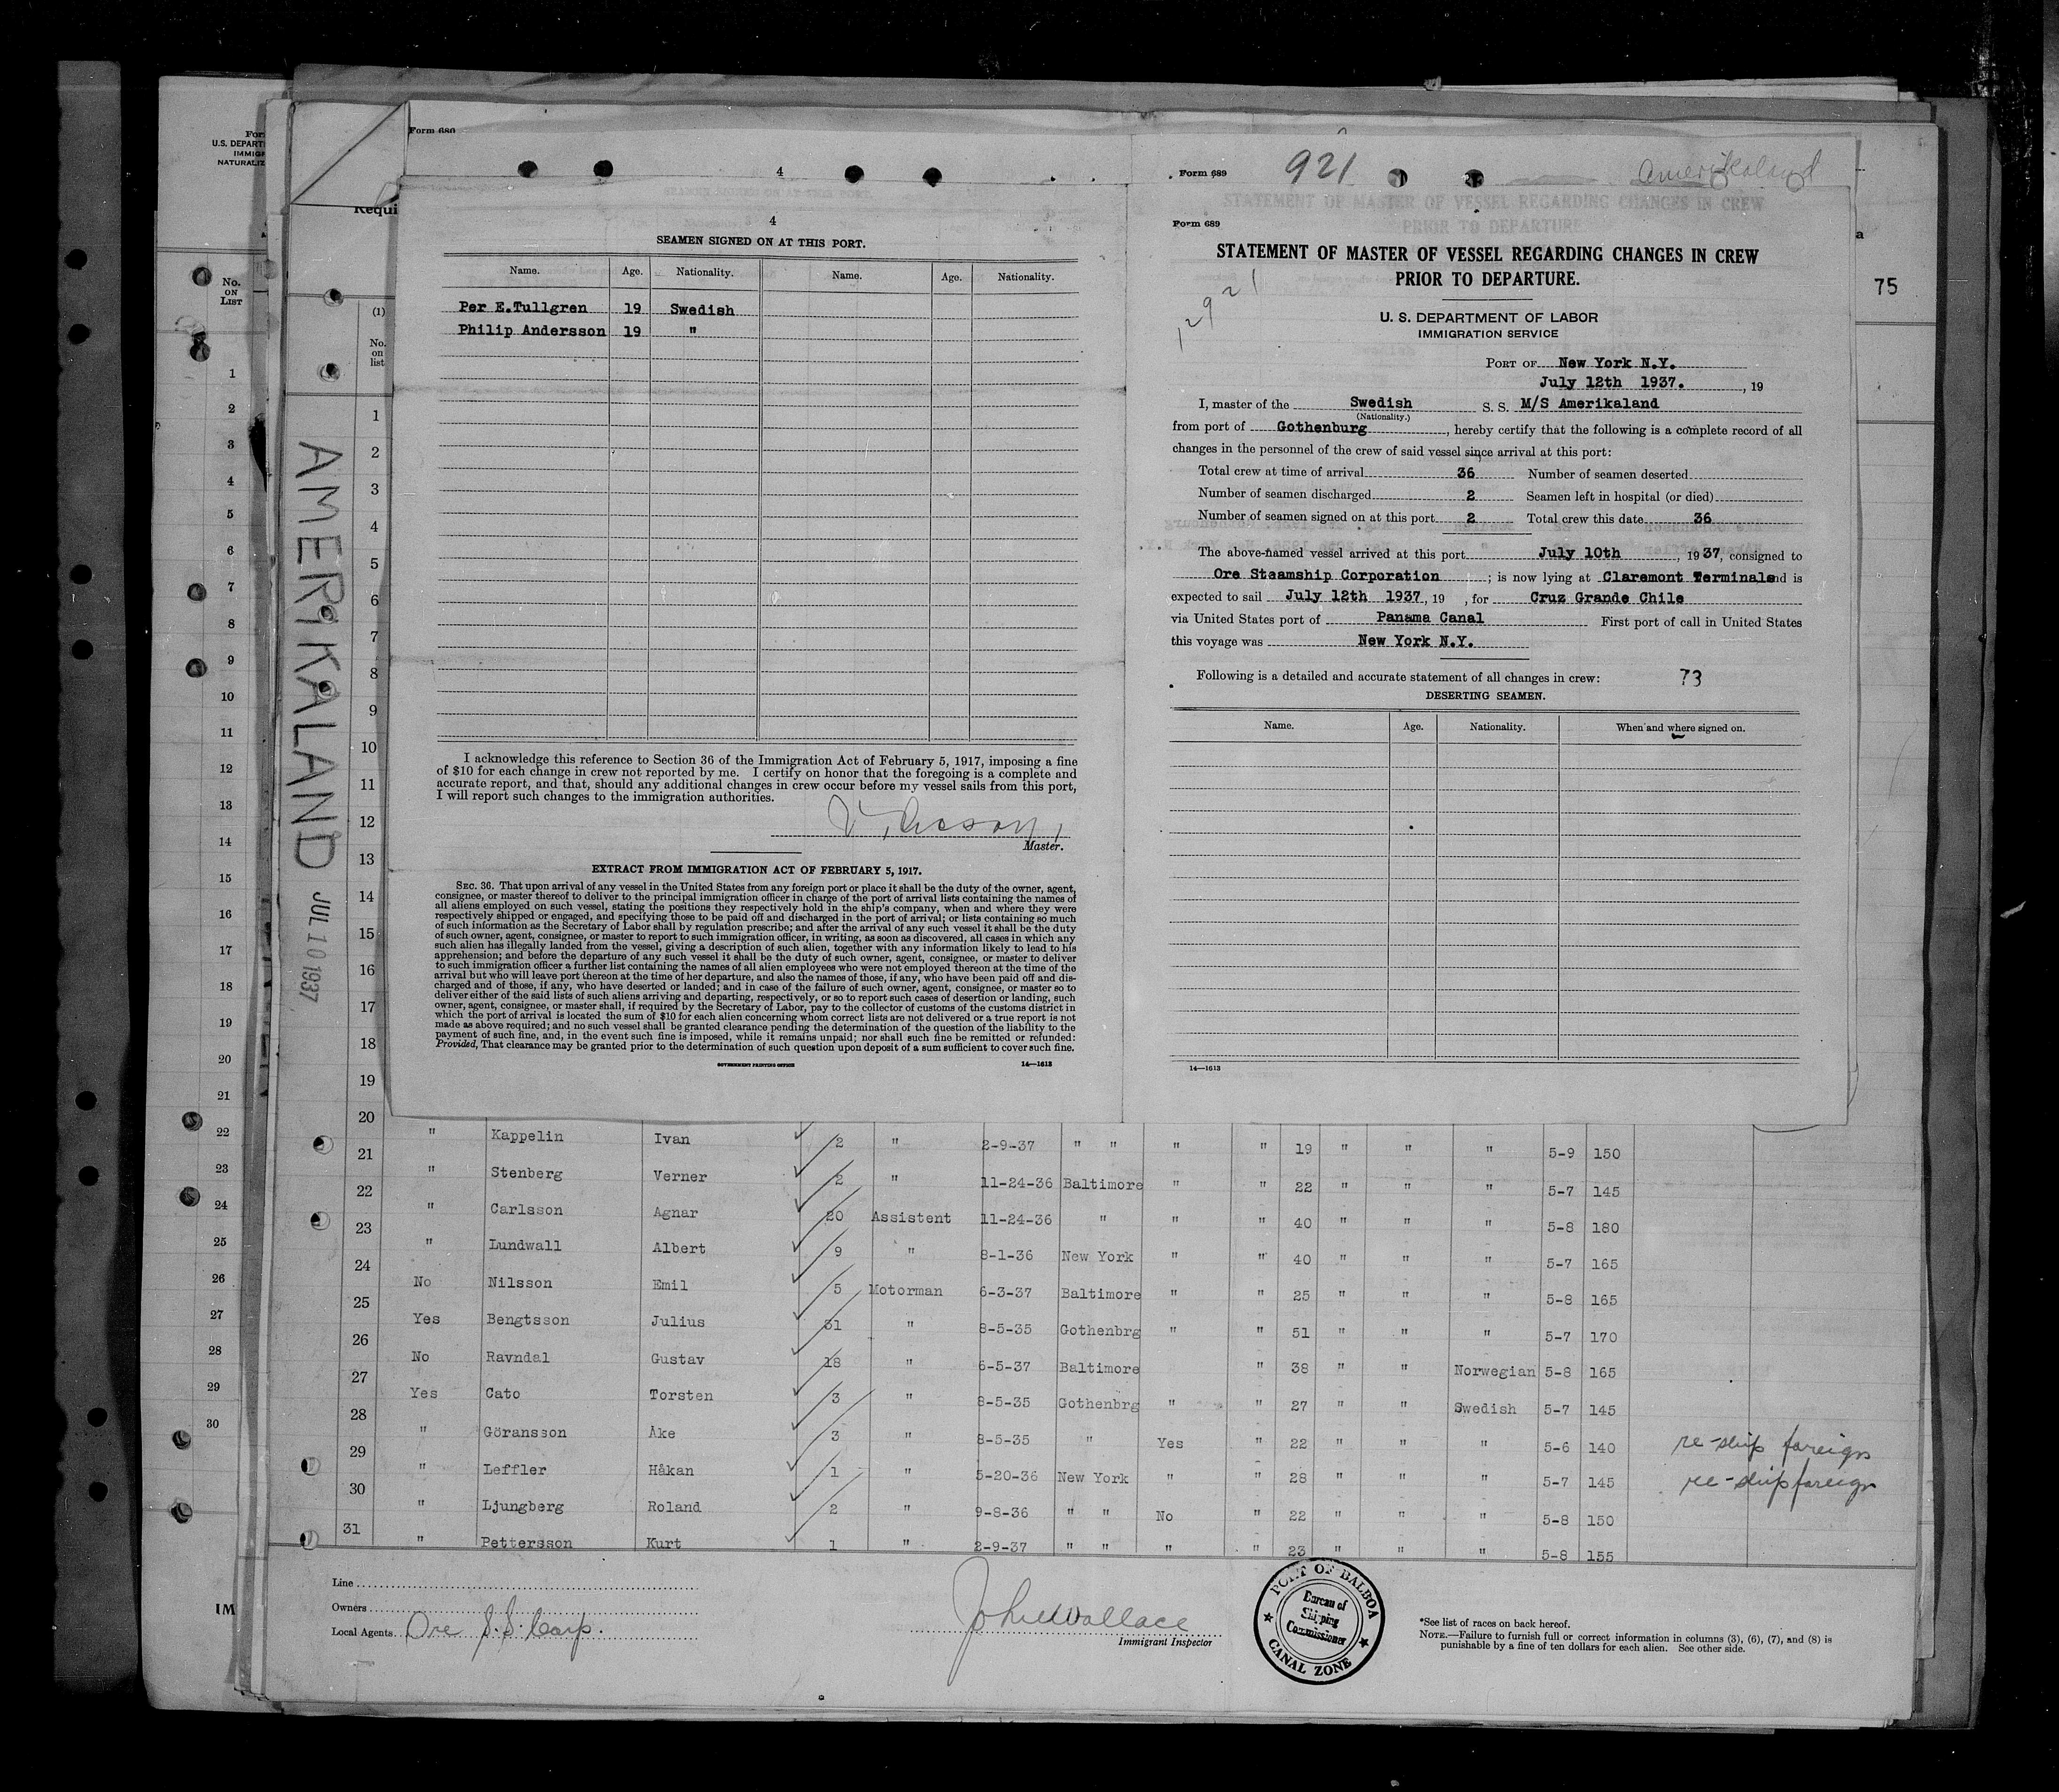 Form 680
4
Form 689
921
Amerikaland
4
SEAMEN SIGNED ON AT THIS PORT.
Name. Age. Nationality. Name. Age. Nationality.
Per E.Tullgren 19 Swedish
Philip Andersson 19 "
I acknowledge this reference to Section 36 of the Immigration Act of February 5, 1917, imposing a fine
of $10 for each change in crew not reported by me. I certify on honor that the foregoing is a complete and
accurate report, and that, should any additional changes in crew occur before my vessel sails from this port,
I will report such changes to the immigration authorities.
Master.
EXTRACT FROM IMMIGRATION ACT OF FEBRUARY 5, 1917.
SEC. 36. That upon arrival of any vessel in the United States from any foreign port or place it shall be the duty of the owner, agent,
consignee, or master thereof to deliver to the principal immigration officer in charge of the port of arrival lists containing the names of
all aliens employed on such vessel, stating the positions they respectively hold in the ship's company, when and where they were
respectively shipped or engaged, and specifying those to be paid off and discharged in the port of arrival; or lists containing so much
of such information as the Secretary of Labor shall by regulation prescribe; and after the arrival of any such vessel it shall be the duty
of such owner, agent, consignee, or master to report to such immigration officer, in writing, as soon as discovered, all cases in which any
such alien has illegally landed from the vessel, giving a description of such alien, together with any information likely to lead to his
apprehension; and before the departure of any such vessel it shall be the duty of such owner, agent, consignee, or master to deliver
to such immigration officer a further list containing the names of all alien employees who were not employed thereon at the time of the
arrival but who will leave port thereon at the time of her departure, and also the names of those, if any, who have been paid off and dis-
charged and of those, if any, who have deserted or landed; and in case of the failure of such owner, agent, consignee, or master so to
deliver either of the said lists of such aliens arriving and departing, respectively, or so to report such cases of desertion or landing, such
owner, agent, consignee, or master shall, if required by the Secretary of Labor, pay to the collector of customs of the customs district in
which the port of arrival is located the sum of $10 for each alien concerning whom correct lists are not delivered or a true report is not
made as above required; and no such vessel shall be granted clearance pending the determination of the question of the liability to the
payment of such fine, and, in the event such fine is imposed, while it remains unpaid; nor shall such fine be remitted or refunded:
Provided, That clearance may be granted prior to the determination of such question upon deposit of a sum sufficient to cover such fine.
GOVERNMENT PRINTING OFFICE 14—1613
Form 689
STATEMENT OF MASTER OF VESSEL REGARDING CHANGES IN CREW
PRIOR TO DEPARTURE.
U. S. DEPARTMENT OF LABOR
IMMIGRATION SERVICE
PORT OF New York N.Y.
July 12th 1937. , 19
I, master of the Swedish S. S. M/S Amerikaland
(Nationality.)
from port of Gothenburg, hereby certify that the following is a complete record of all
changes in the personnel of the crew of said vessel since arrival at this port:
Total crew at time of arrival 36 Number of seamen deserted
Number of seamen discharged 2 Seamen left in hospital (or died)
Number of seamen signed on at this port 2 Total crew this date 36
The above-named vessel arrived at this port July 10th, 1937, consigned to
Ore Steamship Corporation ; is now lying at Claremont Terminal and is
expected to sail July 12th 1937, 19 , for Cruz Grande Chile
via United States port of Panama Canal First port of call in United States
this voyage was New York N.Y.
Following is a detailed and accurate statement of all changes in crew: 73
DESERTING SEAMEN.
Name. Age. Nationality. When and where signed on.
14—1613
75
AMERIKALAND JUL 10 1937
No. ON LIST
(1)
No. on list
1
2
3
4
5
6
7
8
9
10
11
12
13
14
15
16
17
18
19
20
21
22
23
24
25
26
27
28
29
30
1
2
3
4
5
6
7
8
9
10
11
12
13
14
15
16
17
18
19
20
" Kappelin Ivan 2 " 2-9-37 " " " " 19 " " " 5-9 150
21 " Stenberg Verner 2 " 11-24-36 Baltimore " " 22 " " " 5-7 145
22 " Carlsson Agnar 20 Assistent 11-24-36 " " " 40 " " " 5-8 180
23 " Lundwall Albert 9 " 8-1-36 New York " " 40 " " " 5-7 165
24 No Nilsson Emil 5 Motorman 6-3-37 Baltimore " " 25 " " " 5-8 165
25 Yes Bengtsson Julius 31 " 8-5-35 Gothenbrg " " 51 " " " 5-7 170
26 No Ravndal Gustav 18 " 6-5-37 Baltimore " 38 " " Norwegian 5-8 165
27 Yes Cato Torsten 3 " 8-5-35 Gothenbrg " " 27 " " Swedish 5-7 145
28 " Göransson Åke 3 " 8-5-35 " Yes " 22 " " " 5-6 140 re-ship foreign
29 " Leffler Håkan 1 " 5-20-36 New York " " 28 " " " 5-7 145 re-ship foreign
30 " Ljungberg Roland 2 " 9-8-36 " " No " 22 " " " 5-8 150
31 " Pettersson Kurt 1 " 2-9-37 " " " " 23 " " " 5-8 155
Line
Owners
Local Agents Ore S.S. Corp.
John Wallace
Immigrant Inspector
PORT OF BALBOA
Bureau of
Shipping
Commissioner
CANAL ZONE
*See list of races on back hereof.
NOTE.—Failure to furnish full or correct information in columns (3), (6), (7), and (8) is
punishable by a fine of ten dollars for each alien. See other side.